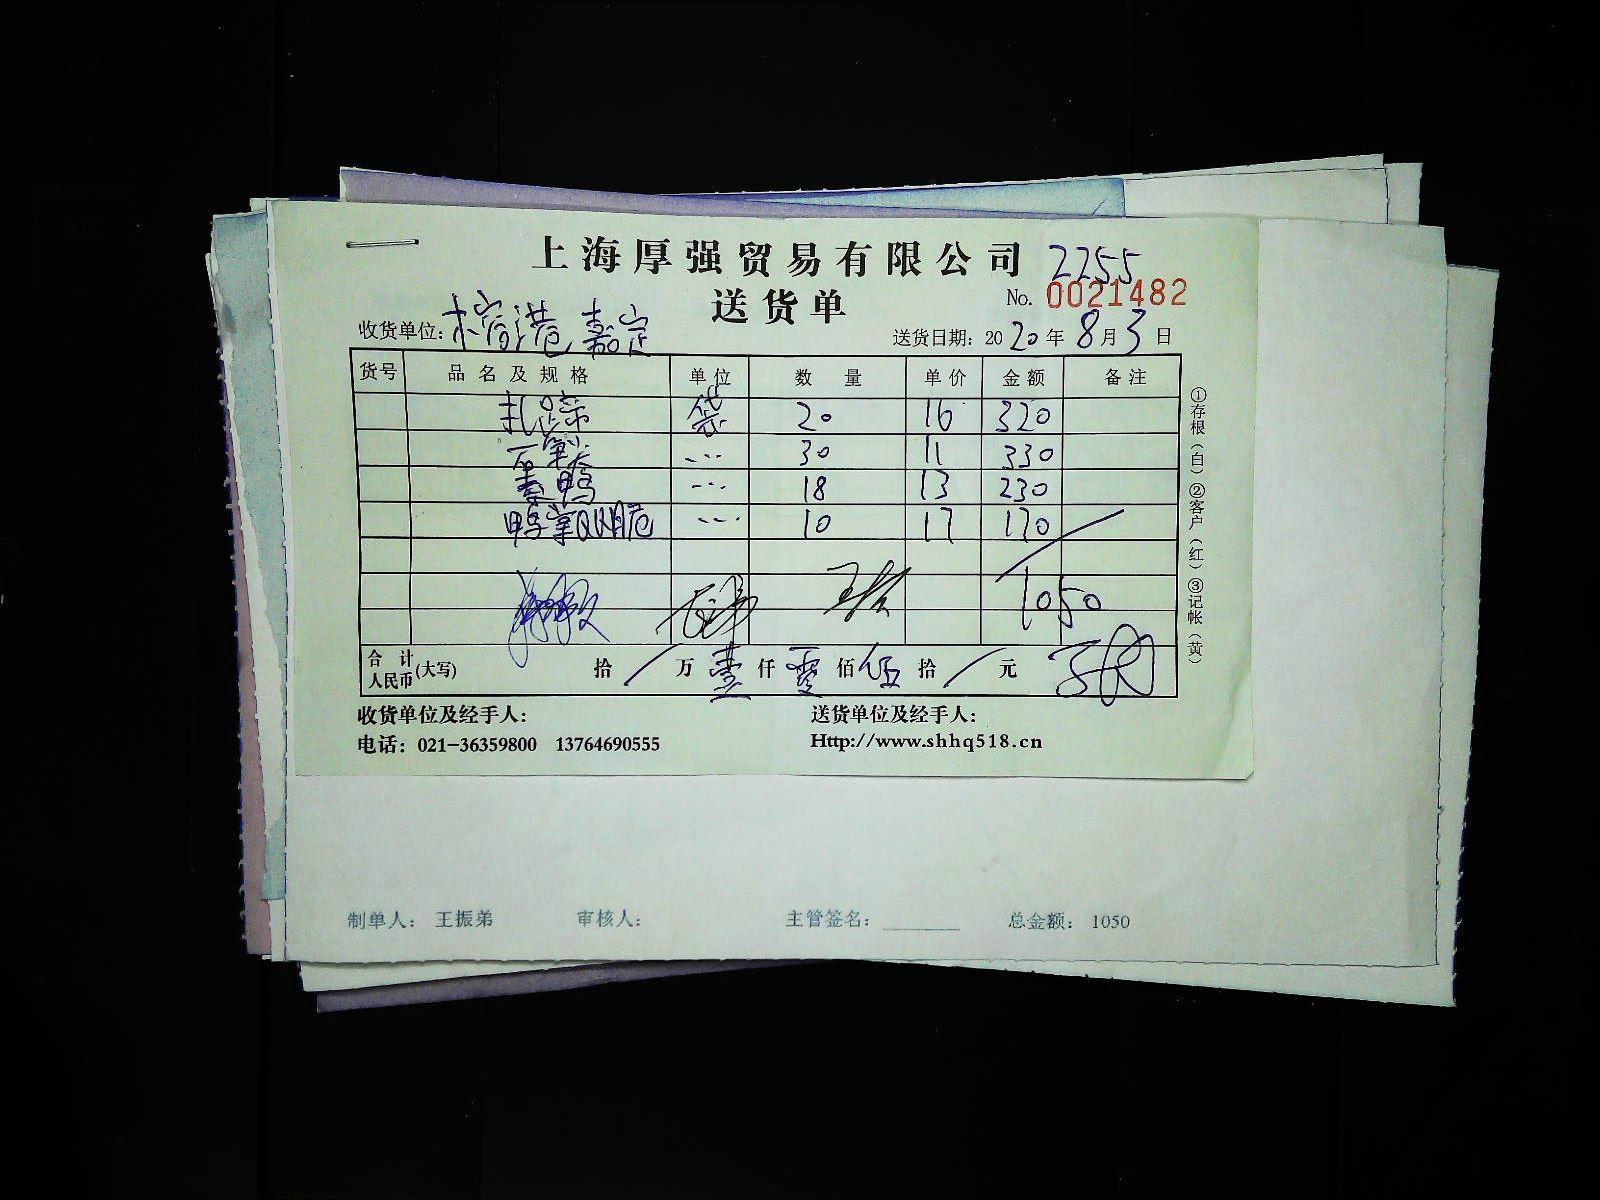 上海厚强贸易有限公司 2255
送货单 No. 0021482
收货单位: 港 嘉定 送货日期: 2020年8月3日
货号 品名及规格 单位 数量 单价 金额 备注
扎蹄 袋 20 16 320
30 11 330
素鸭 18 13 230
鸭掌 脆 10 17 170
1050
合计人民币(大写) 拾 / 万 壹 仟 零 佰 伍 拾 / 元
收货单位及经手人: 送货单位及经手人:
电话: 021-36359800 13764690555 Http://www.shhq518.cn
①存根(白)②客户(红)③记帐(黄)
制单人: 王振弟 审核人: 主管签名: 总金额: 1050